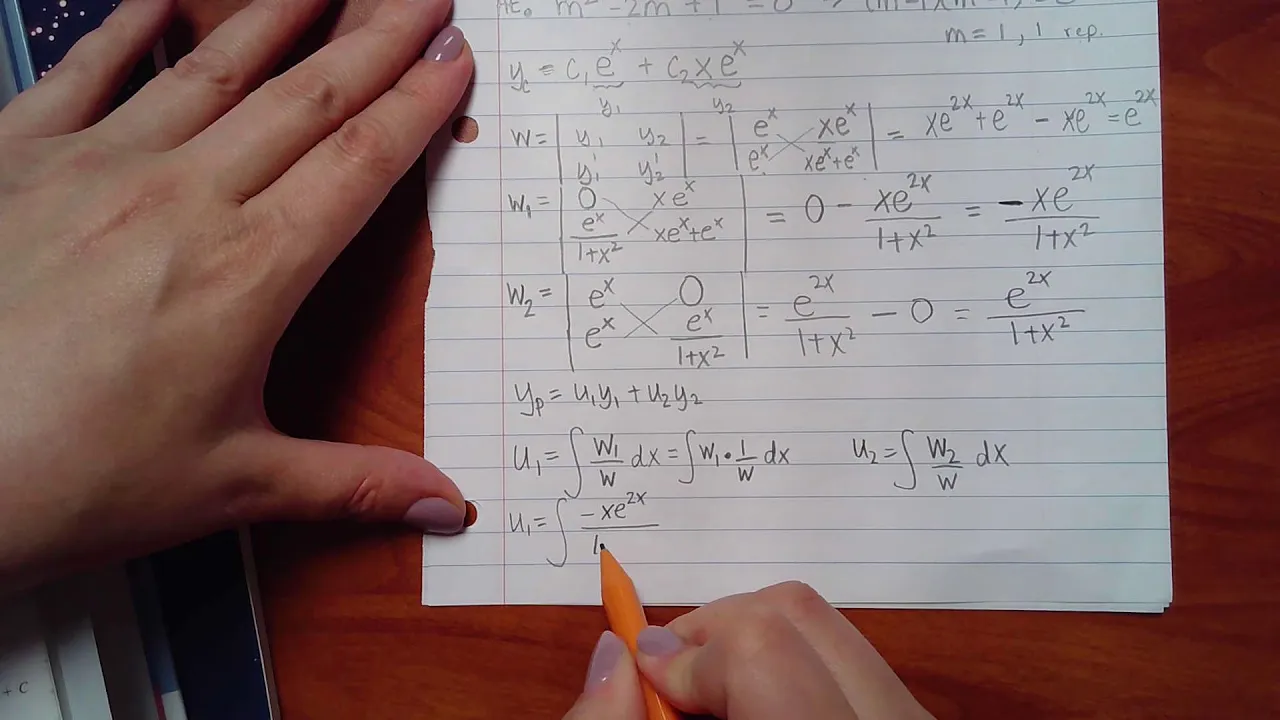 AE. m² - 2m + 1 = 0
m = 1, 1 rep.
y_c = c₁e^x + c₂xe^x
y₁ y₂
W = | y₁ y₂ ; y₁' y₂' | = | e^x xe^x ; e^x xe^x+e^x | = xe^2x + e^2x - xe^2x = e^2x
W₁ = | 0 xe^x ; e^x/(1+x²) xe^x+e^x | = 0 - xe^2x/(1+x²) = -xe^2x/(1+x²)
W₂ = | e^x 0 ; e^x e^x/(1+x²) | = e^2x/(1+x²) - 0 = e^2x/(1+x²)
y_p = u₁y₁ + u₂y₂
u₁ = ∫ W₁/W dx = ∫ W₁ • 1/W dx u₂ = ∫ W₂/W dx
u₁ = ∫ -xe^2x / 1
+ C